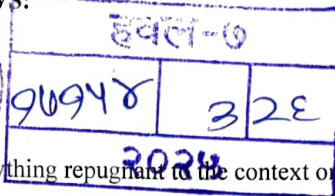 हवल-७
१७१५४ ३ २६
ything repugnant to the context of